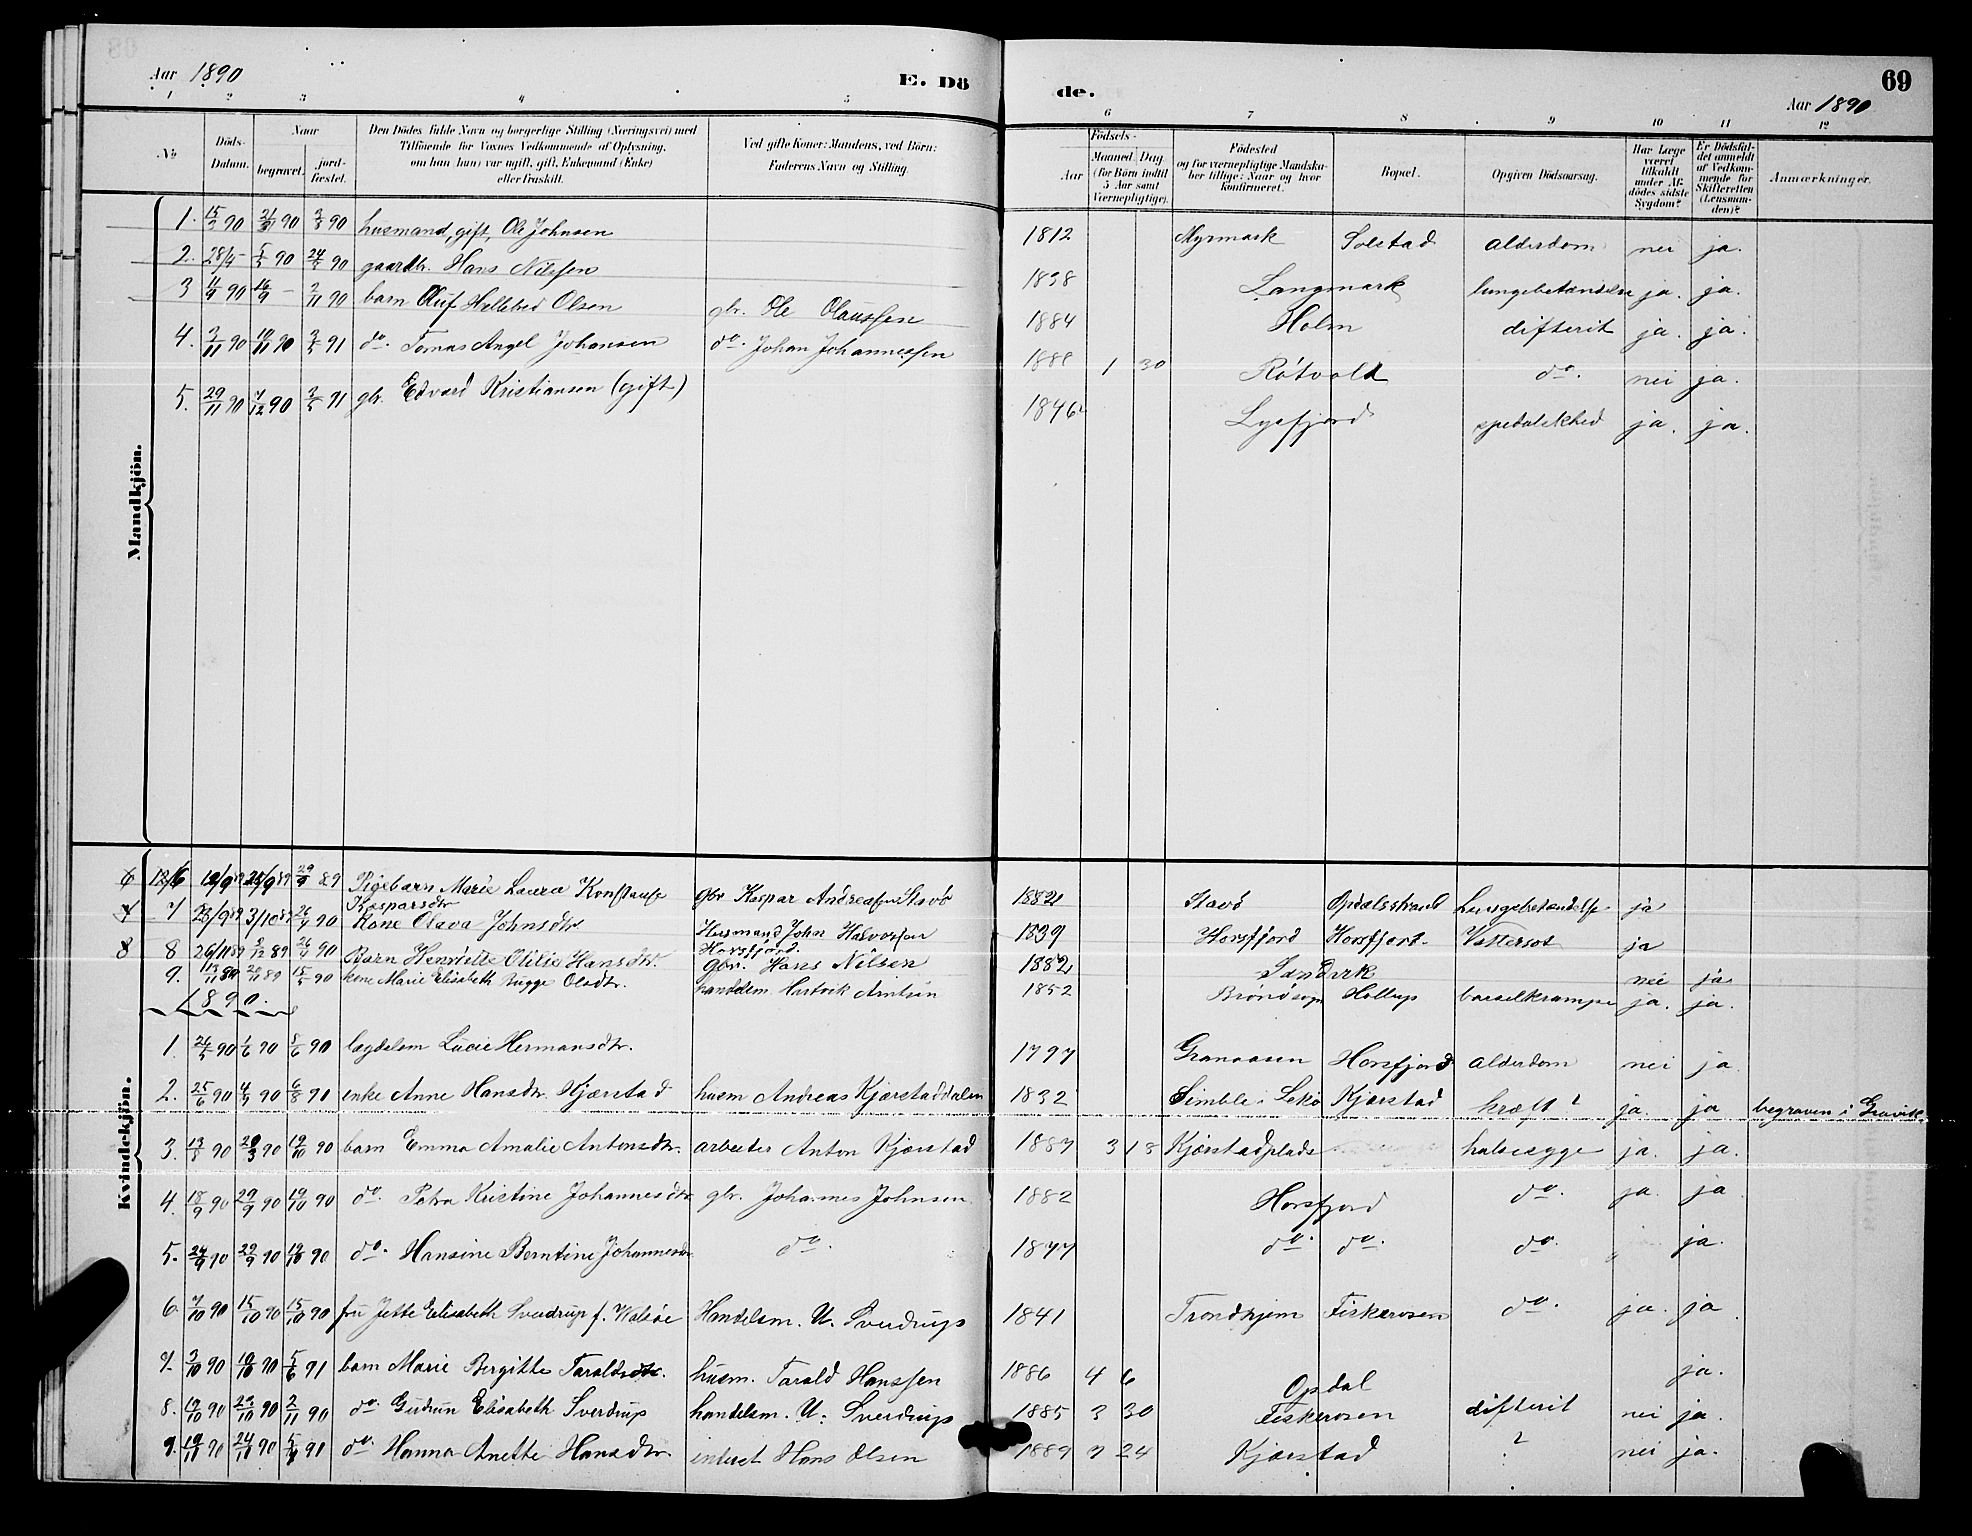 Aar 1890
E. Dö
de.
69
Aar 1890
1 2 3 4 5 6 7 8 9 10 11 12
No
Döds-Datum.
Naar
begravet.
jord-fæstet.
Den Dödes fulde Navn og borgerlige Stilling (Næringsvei) med
Tilföiende for Voxnes Vedkommende af Oplysning,
om han (hun) var ugift, gift, Enkemand (Enke)
eller fraskilt.
Ved gifte Koner: Mandens, ved Börn:
Faderens Navn og Stilling.
Födsels-
Aar
Maaned. Dag.
(for Börn indtil
5 Aar samt
Værnepligtige).
Födested
og for værnepligtige Mandska-
ber tillige: Naar og hvor
konfirmeret.
Bopæl.
Opgiven Dödsaarsag.
Har Læge
været
tilkaldt
under Af-
dödes sidste
Sygdom?
Er Dödsfal-
det anmeldt
af Vedkom-
mende for
Skifteretten
(Lensman-
den)?
Anmærkninger.
Mandkjön.
1. 90 90 90 husmand, gift, Ole Johnsen 1812 Myrmark Solstad alderdom nei ja.
2. 28/4 90 90 gaardbr. Hans Nilssen 1838 Langmark lungebetændelse ja. ja.
3 90 16/9 2/11 90 barn Oluf Hellebed Olsen gbr. Ole Olaussen 1884 Holm difterit ja. ja.
4. 3/11 90 10/11 90 3/5 91 do. Tomas Angel Johansen do. Johan Johannessen 1888 1 30 Røtvold do. nei ja.
5. 29/11 90 7/12 90 3/5 91 gbr. Edvard Kristiansen (gift) 1846 Lysfjord spedalskhed ja. ja.
Kvindekjön.
6 12/9 89 89 Pigebarn Marie Laura Konstanse Kasparsdtr gbr Kaspar Andreassen Stavø 1882 Stavø Opdalsstrand Lungebetændelse ja
7 89 3/10 89 90 Kone Olava Johnsdtr Husmand John Halvorsen Horsfjord 1839 Horsfjord Horsfjord. Vattersot ja
8 8 26/11 89 89 90 Barn Henriette Otilie Hansdtr. gbr. Hans Nilsen 1882 Sandvik nei ja
9. 89 89 15/5 90 kone Marie Elisabeth Bugge Olsdtr. handelsm. Hartvik Arntsen 1852 Brønøsogn barselkrampe ja. ja.
1890.
1. 26/5 90 1/6 90 8/6 90 lægdslem Lucie Hermansdtr. 1797 Granaasen Horsfjord alderdom nei ja
2. 25/6 90 90 6/8 90 enke Anne Hansdtr. Kjærstad husm Andreas Kjærstaddalen 1832 Simble i Lekø Kjærstad kræft? ja. ja begraven i Gravvik.
3. 90 90 19/10 90 barn Emma Amalie Antonsdtr. arbeider Anton Kjærstad 1887 3 18 Kjærstadplads halssyge ja. ja.
4. 18/9 90 29/9 90 19/10 90 do. Petra Kristine Johannesdtr. gbr. Johannes Johnsen 1882 Horsfjord do. ja. ja
5. 24/9 90 29/9 90 19/10 90 do. Hansine Berntine Johannesdtr do. 1877 do. do. do. ja.
6 7/10 90 15/10 90 15/10 90 fru Jette Elisabeth Sverdrup f. Walsøe Handelsm. U. Sverdrup 1841 Trondhjem Fiskerosen do. ja. ja
7. 3/10 90 10/10 90 5/6 91 barn Marie Bergitte Taraldsdtr. husm. Tarald Hanssen 1886 4 6 Opdal ja.
8. 19/10 90 10 90 2/11 90 do. Gudrun Elisabeth Sverdrup handelsm. U. Sverdrup 1885 3 30 Fiskerosen difterit nei ja.
9. 90 90 91 do. Hanna Anette Hansdtr. inderst Hans Olsen 1889 7 24 Kjærstad ? nei ja.